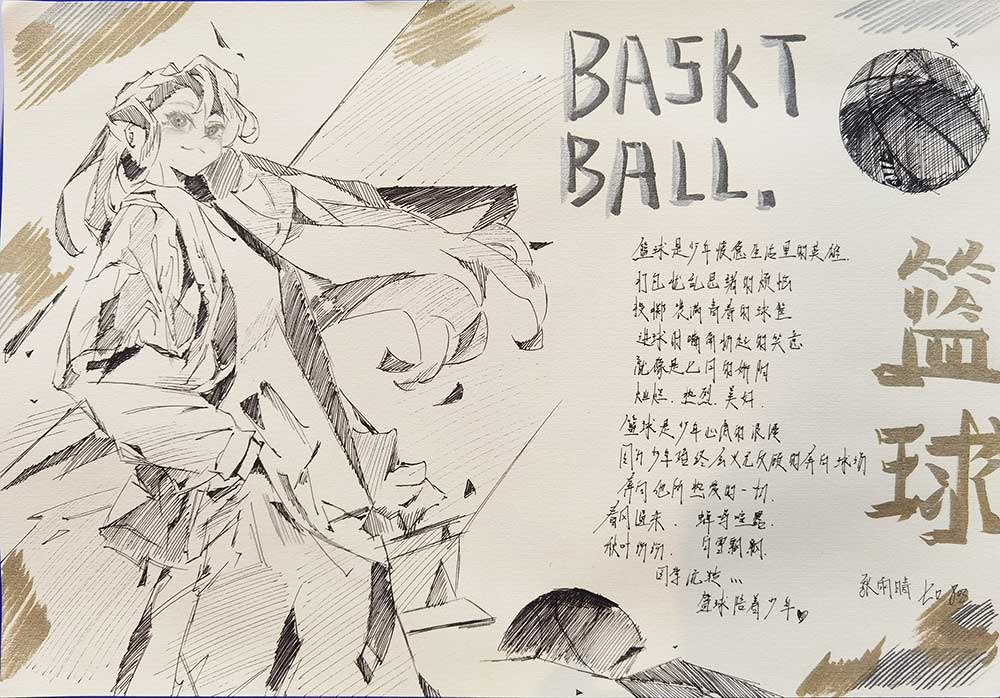 BASKT
BALL.
篮球是少年惬意生活里的英雄
打包忙乱思绪的烦恼
投掷装满青春的球筐
进球时嘴角扬起的笑意
就像是七月的骄阳
灿烂、热烈、美好.
篮球是少年心底的浪漫
因为少年始终会义无反顾的奔向球场
奔向他所热爱的一切.
春风迎来、蝉鸣喧嚣
秋叶纷纷、白雪飘飘
四季流转…
篮球陪着少年
篮
球
张雨晴